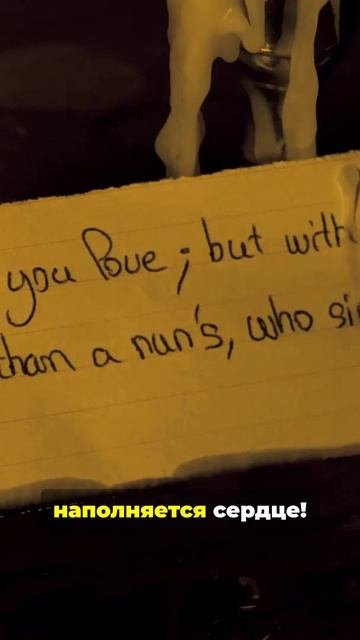 you love; but with
than a nun's, who
наполняется сердце!